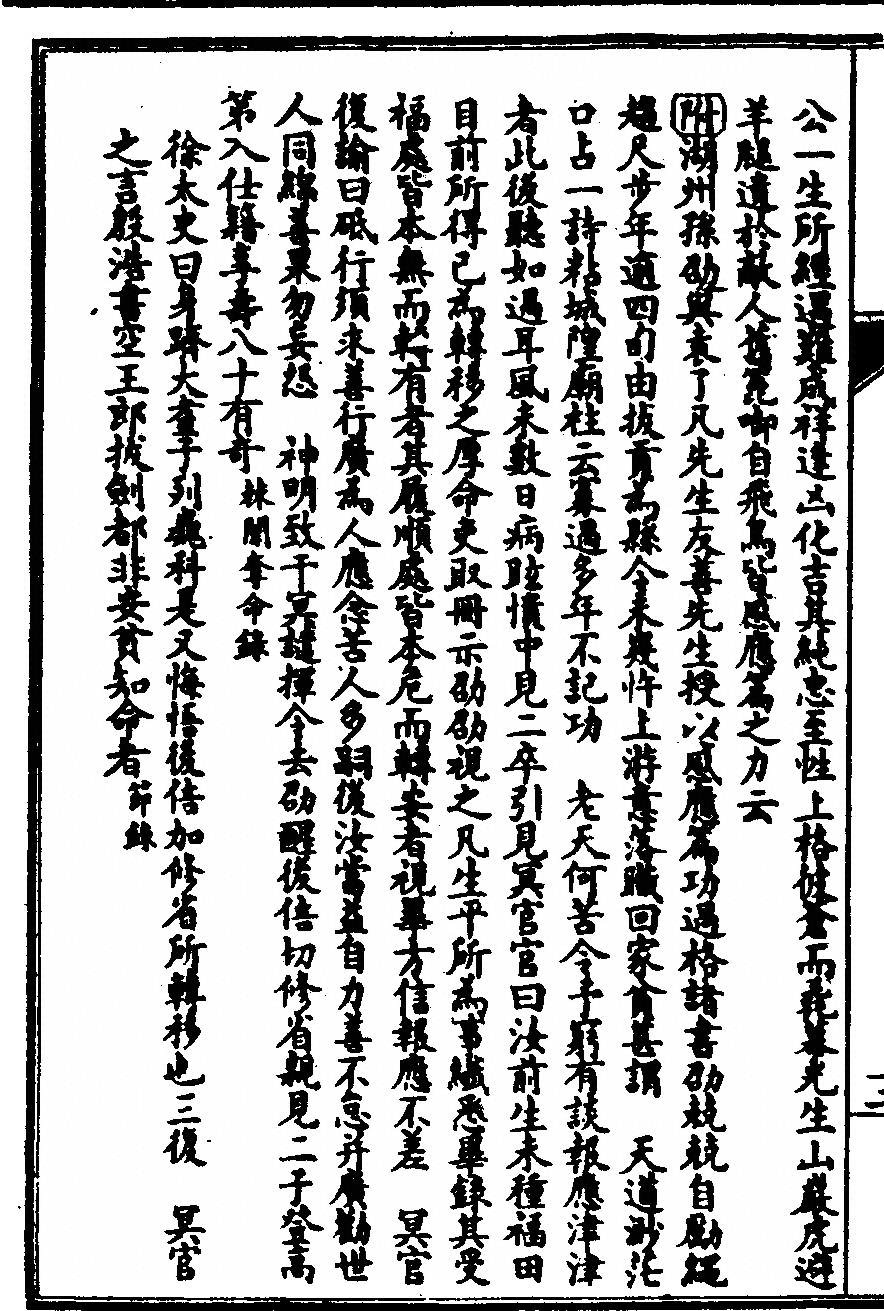 公一生所經過難成祥逢凶化吉其純忠至性上格彼蒼而甍墓光生山嚴虎避
羊腿遺於敵人舊冤啣自飛鳥皆感應篇之力云
附湖州孫劭與袁了凡先生友善先生授以感應篇功過格諸書劭兢兢自勵繩
趨尺步年逾四旬由拔貢為縣令未幾忤上游意落職回家貧甚謂 天道渺茫
口占一詩粘城隍廟柱云寡過多年不記功 老天何苦令予窮有談報應津津
者此後聽如過耳風未數日病眩憒中見二卒引見冥官官曰汝前生未種福田
目前所得已為轉移之厚命吏取冊示劭劭視之凡生平所為事纖悉畢錄其受
福處皆本無而轉有者其履順處皆本危而轉安者視畢方信報應不差 冥官
復諭曰砥行須求善行廣為人應念苦人多嗣後汝當益自力善不怠并廣勸世
人同綿善果勿妄怨 神明致干冥譴揮令去劭醒後倍切修省親見二子登高
第入仕籍享壽八十有奇 秣閒奪命錄
徐太史曰身躋大耋子列巍科是又悔悟後倍加修省所轉移也三復 冥官
之言殷浩書空王郎拔劍都非安貧知命者 節錄